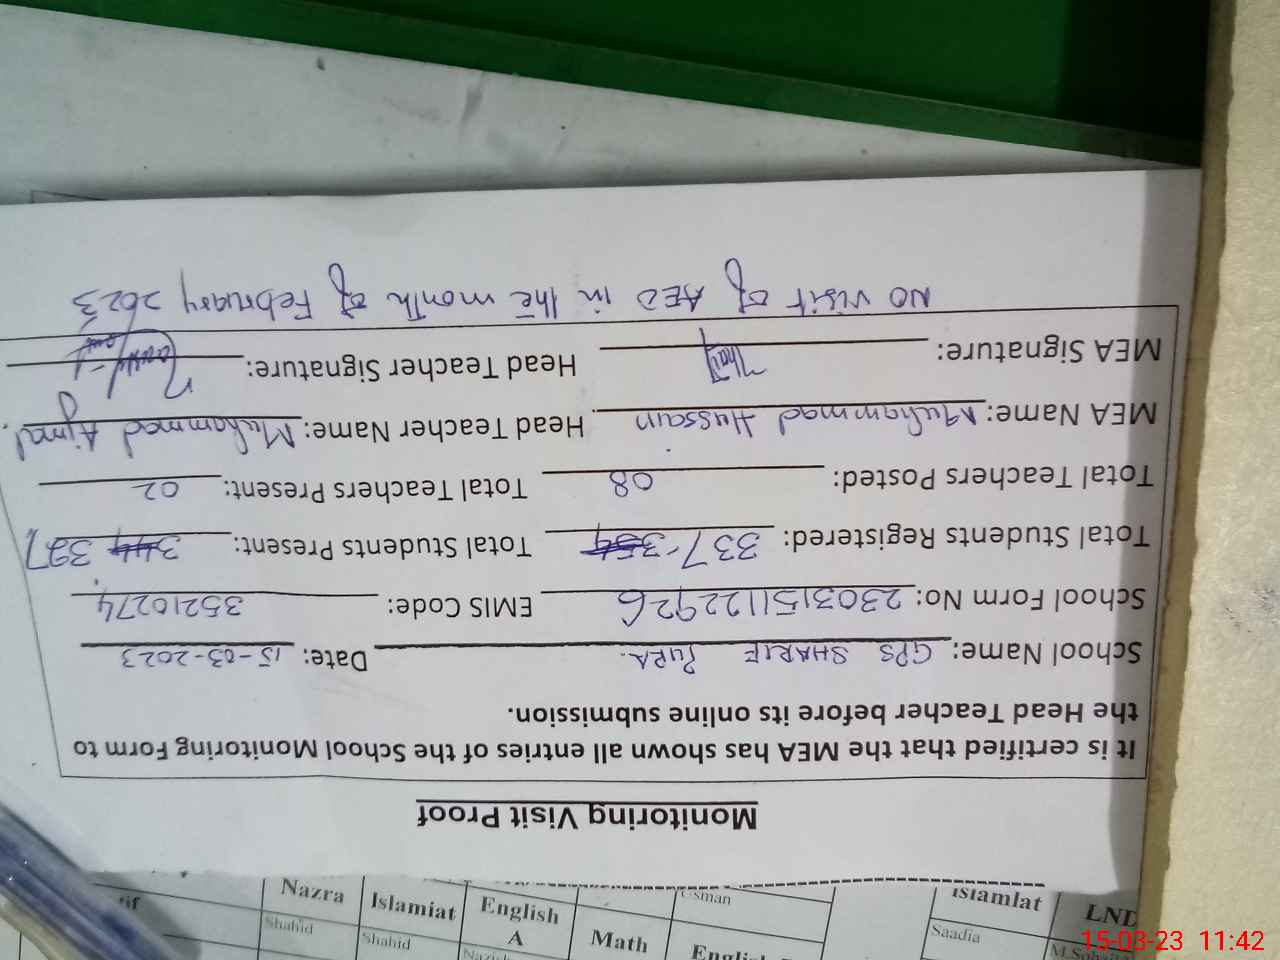 Monitoring Visit Proof
It is certified that the MEA has shown all entries of the School Monitoring Form to
the Head Teacher before its online submission.
School Name: GPS SHARIF PURA. Date: 15-03-2023
School Form No: 2303151122926 EMIS Code: 35210274
Total Students Registered: 337 354 Total Students Present: 344 327
Total Teachers Posted: 08 Total Teachers Present: 02
MEA Name: Muhammad Hussain Head Teacher Name: Muhammad Ajmal
MEA Signature: Head Teacher Signature:
NO visit of AEO in the month of February 2023
Nazra Islamiat English A Math English Usman Islamiat LND
Shahid Shahid Saadia
15-03-23 11:42